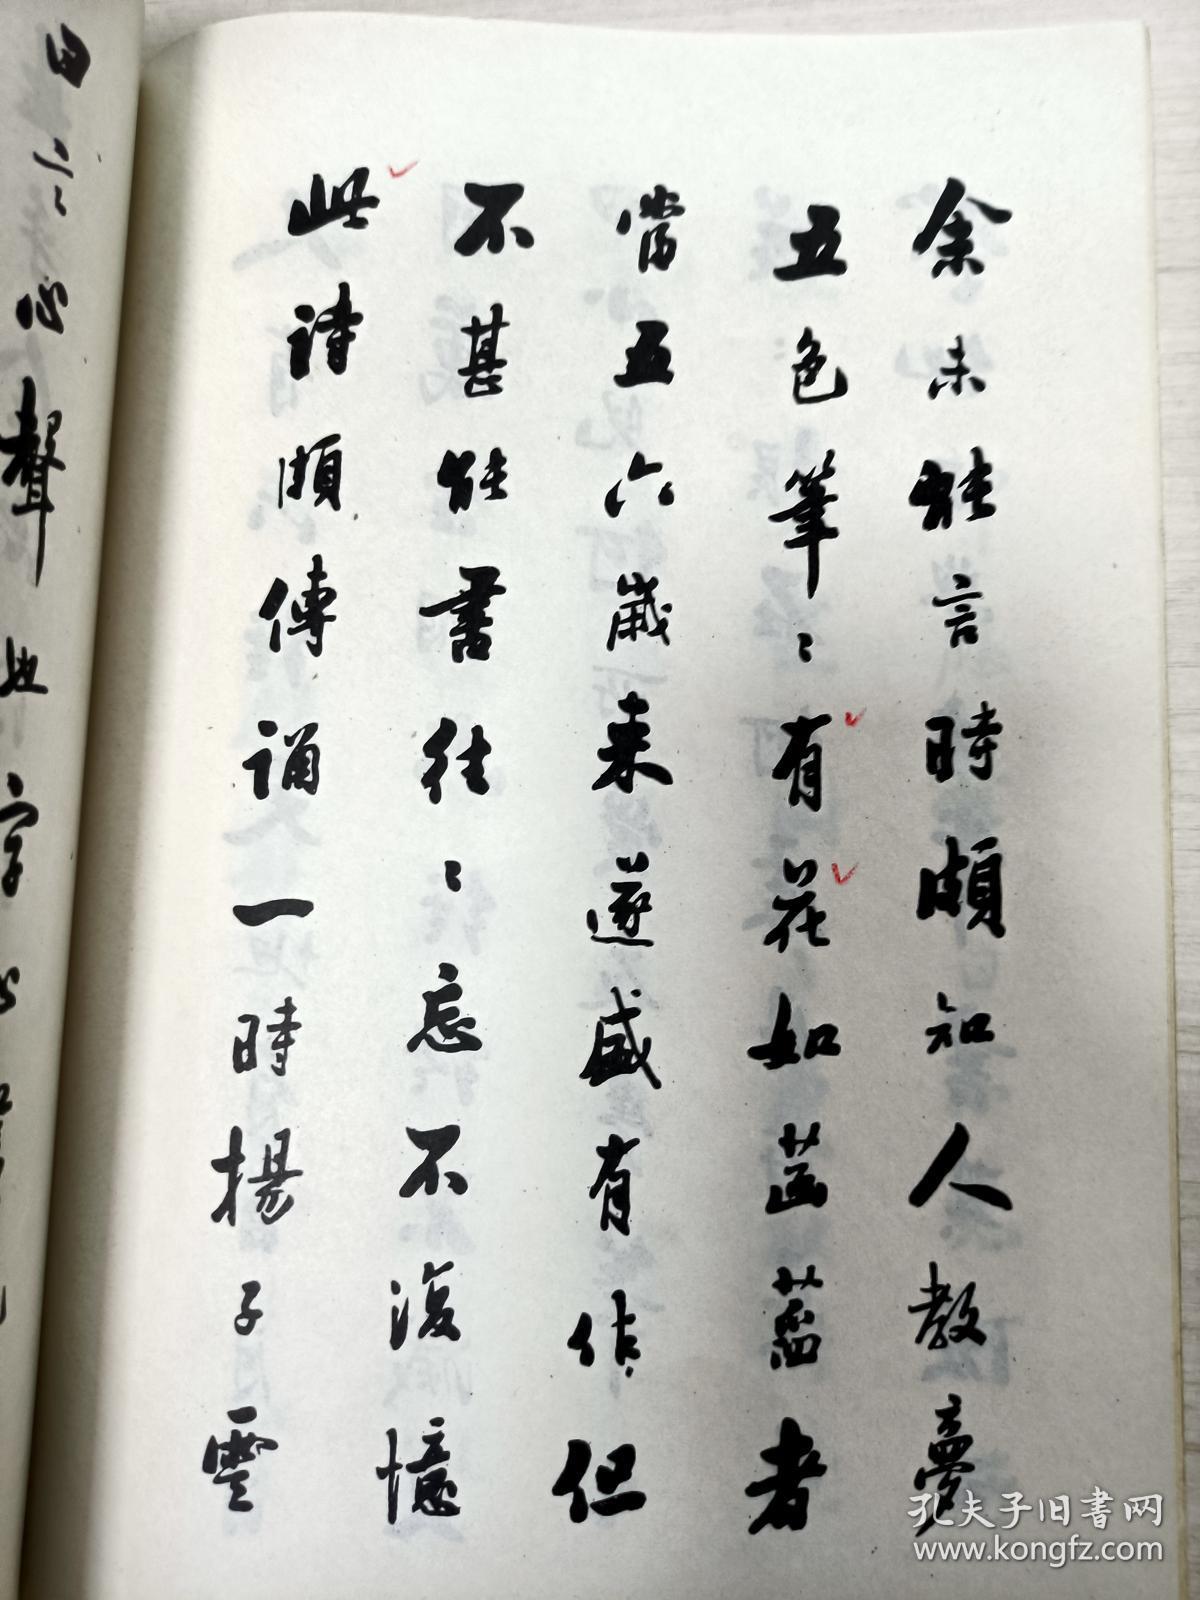 余未能言時頗知人教夢
五色筆〻有花如菡萏者
當五六歲来遂盛有作但
不甚能書往〻忘不復憶
此詩頗傳誦一時揚子雲
曰言心聲也字
孔夫子旧书网
www.kongfz.com